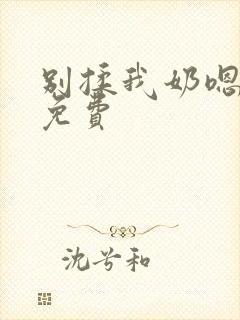 别揉我奶嗯
免費
沈兮和